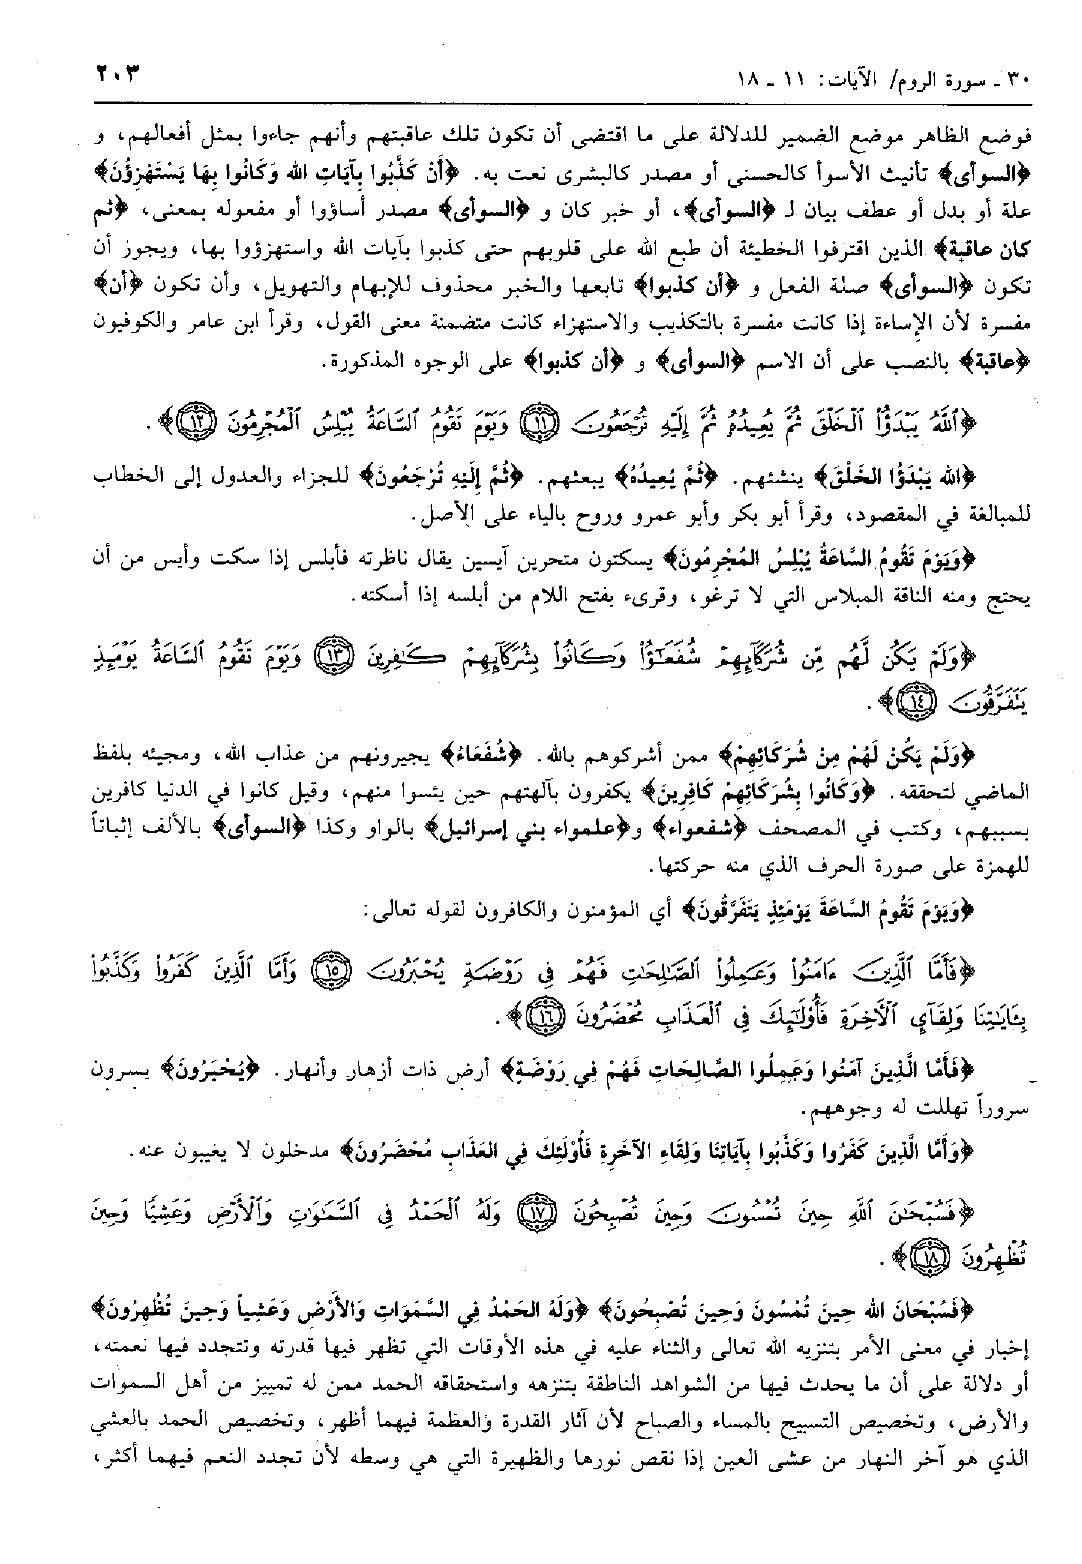 ٣٠ ـ سورة الروم/ الآيات: ١١ ـ ١٨
٢٠٣
فوضع الظاهر موضع الضمير للدلالة على ما اقتضى أن تكون تلك عاقبتهم وأنهم جاءوا بمثل أفعالهم، و
﴿السوأى﴾ تأنيث الأسوأ كالحسنى أو مصدر كالبشرى نعت به. ﴿أَنْ كَذَّبُوا بِآيَاتِ الله وَكَانُوا بِهَا يَسْتَهْزِؤُنَ﴾
علة أو بدل أو عطف بيان لـ ﴿السوأى﴾، أو خبر كان و ﴿السوأى﴾ مصدر أساؤوا أو مفعوله بمعنى، ﴿ثم
كان عاقبة﴾ الذين اقترفوا الخطيئة أن طبع الله على قلوبهم حتى كذبوا بآيات الله واستهزؤوا بها، ويجوز أن
تكون ﴿السوأى﴾ صلة الفعل و ﴿أن كذبوا﴾ تابعها والخبر محذوف للإبهام والتهويل، وأن تكون ﴿أن﴾
مفسرة لأن الإساءة إذا كانت مفسرة بالتكذيب والاستهزاء كانت متضمنة معنى القول، وقرأ ابن عامر والكوفيون
﴿عاقبة﴾ بالنصب على أن الاسم ﴿السوأى﴾ و ﴿أن كذبوا﴾ على الوجوه المذكورة.
﴿ٱللَّهُ يَبْدَؤُاْ ٱلْخَلْقَ ثُمَّ يُعِيدُهُ ثُمَّ إِلَيْهِ تُرْجَعُونَ ١١ وَيَوْمَ تَقُومُ ٱلسَّاعَةُ يُبْلِسُ ٱلْمُجْرِمُونَ ١٢﴾.
﴿الله يَبْدَؤُا الخَلْقَ﴾ ينشئهم. ﴿ثُمَّ يُعِيدُهُ﴾ يبعثهم. ﴿ثُمَّ إِلَيْهِ تُرْجَعُونَ﴾ للجزاء والعدول إلى الخطاب
للمبالغة في المقصود، وقرأ أبو بكر وأبو عمرو وروح بالياء على الأصل.
﴿وَيَوْمَ تَقُومُ السَّاعَةُ يُبْلِسُ المُجْرِمُونَ﴾ يسكتون متحرين آيسين يقال ناظرته فأبلس إذا سكت وأيس من أن
يحتج ومنه الناقة المبلاس التي لا ترغو، وقرىء بفتح اللام من أبلسه إذا أسكته.
﴿وَلَمْ يَكُن لَّهُم مِّن شُرَكَآئِهِمْ شُفَعَٰٓؤُاْ وَكَانُواْ بِشُرَكَآئِهِمْ كَٰفِرِينَ ١٣ وَيَوْمَ تَقُومُ ٱلسَّاعَةُ يَوْمَئِذٍ
يَتَفَرَّقُونَ ١٤﴾.
﴿وَلَمْ يَكُنْ لَهُمْ مِنْ شُرَكَائِهِمْ﴾ ممن أشركوهم بالله. ﴿شُفَعَاءُ﴾ يجيرونهم من عذاب الله، ومجيئه بلفظ
الماضي لتحققه. ﴿وَكَانُوا بِشُرَكَائِهِمْ كَافِرِينَ﴾ يكفرون بآلهتهم حين يئسوا منهم، وقيل كانوا في الدنيا كافرين
بسببهم، وكتب في المصحف ﴿شفعواء﴾ و﴿علمواء بني إسرائيل﴾ بالواو وكذا ﴿السوأى﴾ بالألف إثباتاً
للهمزة على صورة الحرف الذي منه حركتها.
﴿وَيَوْمَ تَقُومُ السَّاعَةَ يَوْمَئِذٍ يَتَفَرَّقُونَ﴾ أي المؤمنون والكافرون لقوله تعالى:
﴿فَأَمَّا ٱلَّذِينَ ءَامَنُواْ وَعَمِلُواْ ٱلصَّٰلِحَٰتِ فَهُمْ فِى رَوْضَةٍ يُحْبَرُونَ ١٥ وَأَمَّا ٱلَّذِينَ كَفَرُواْ وَكَذَّبُواْ
بِـَٔايَٰتِنَا وَلِقَآئِ ٱلْأَخِرَةِ فَأُوْلَٰٓئِكَ فِى ٱلْعَذَابِ مُحْضَرُونَ ١٦﴾.
﴿فَأَمَّا الَّذِينَ آمَنُوا وَعَمِلُوا الصَّالِحَاتِ فَهُمْ فِي رَوْضَةٍ﴾ أرض ذات أزهار وأنهار. ﴿يُحْبَرُونَ﴾ يسرون
سروراً تهللت له وجوههم.
﴿وَأَمَّا الَّذِينَ كَفَرُوا وَكَذَّبُوا بِآيَاتِنَا وَلِقَاءِ الآخَرةِ فَأُوْلَئِكَ فِي العَذَابِ مُحْضَرُونَ﴾ مدخلون لا يغيبون عنه.
﴿فَسُبْحَٰنَ ٱللَّهِ حِينَ تُمْسُونَ وَحِينَ تُصْبِحُونَ ١٧ وَلَهُ ٱلْحَمْدُ فِى ٱلسَّمَٰوَٰتِ وَٱلْأَرْضِ وَعَشِيًّا وَحِينَ
تُظْهِرُونَ ١٨﴾.
﴿فَسُبْحَانَ الله حِينَ تُمْسُونَ وَحِينَ تُصْبِحُونَ﴾ ﴿وَلَهُ الحَمْدُ فِي السَّمَوَاتِ وَالأَرْضِ وَعَشِياً وَحِينَ تُظْهِرُونَ﴾
إخبار في معنى الأمر بتنزيه الله تعالى والثناء عليه في هذه الأوقات التي تظهر فيها قدرته وتتجدد فيها نعمته،
أو دلالة على أن ما يحدث فيها من الشواهد الناطقة بتنزهه واستحقاقه الحمد ممن له تمييز من أهل السموات
والأرض، وتخصيص التسبيح بالمساء والصباح لأن آثار القدرة والعظمة فيهما أظهر، وتخصيص الحمد بالعشي
الذي هو آخر النهار من عشى العين إذا نقص نورها والظهيرة التي هي وسطه لأن تجدد النعم فيهما أكثر،